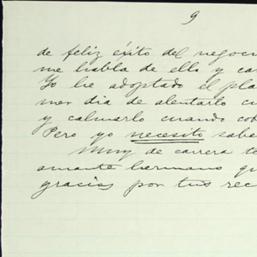 9
de feliz éxito del negoci
me habla de ello y ca
Yo he adoptado el pla
mer dia de alentarlo cu
y calmarlo cuando cob
Pero yo necesito sabe
Muy de carrera te
amante hermano qu
gracias por tus rec